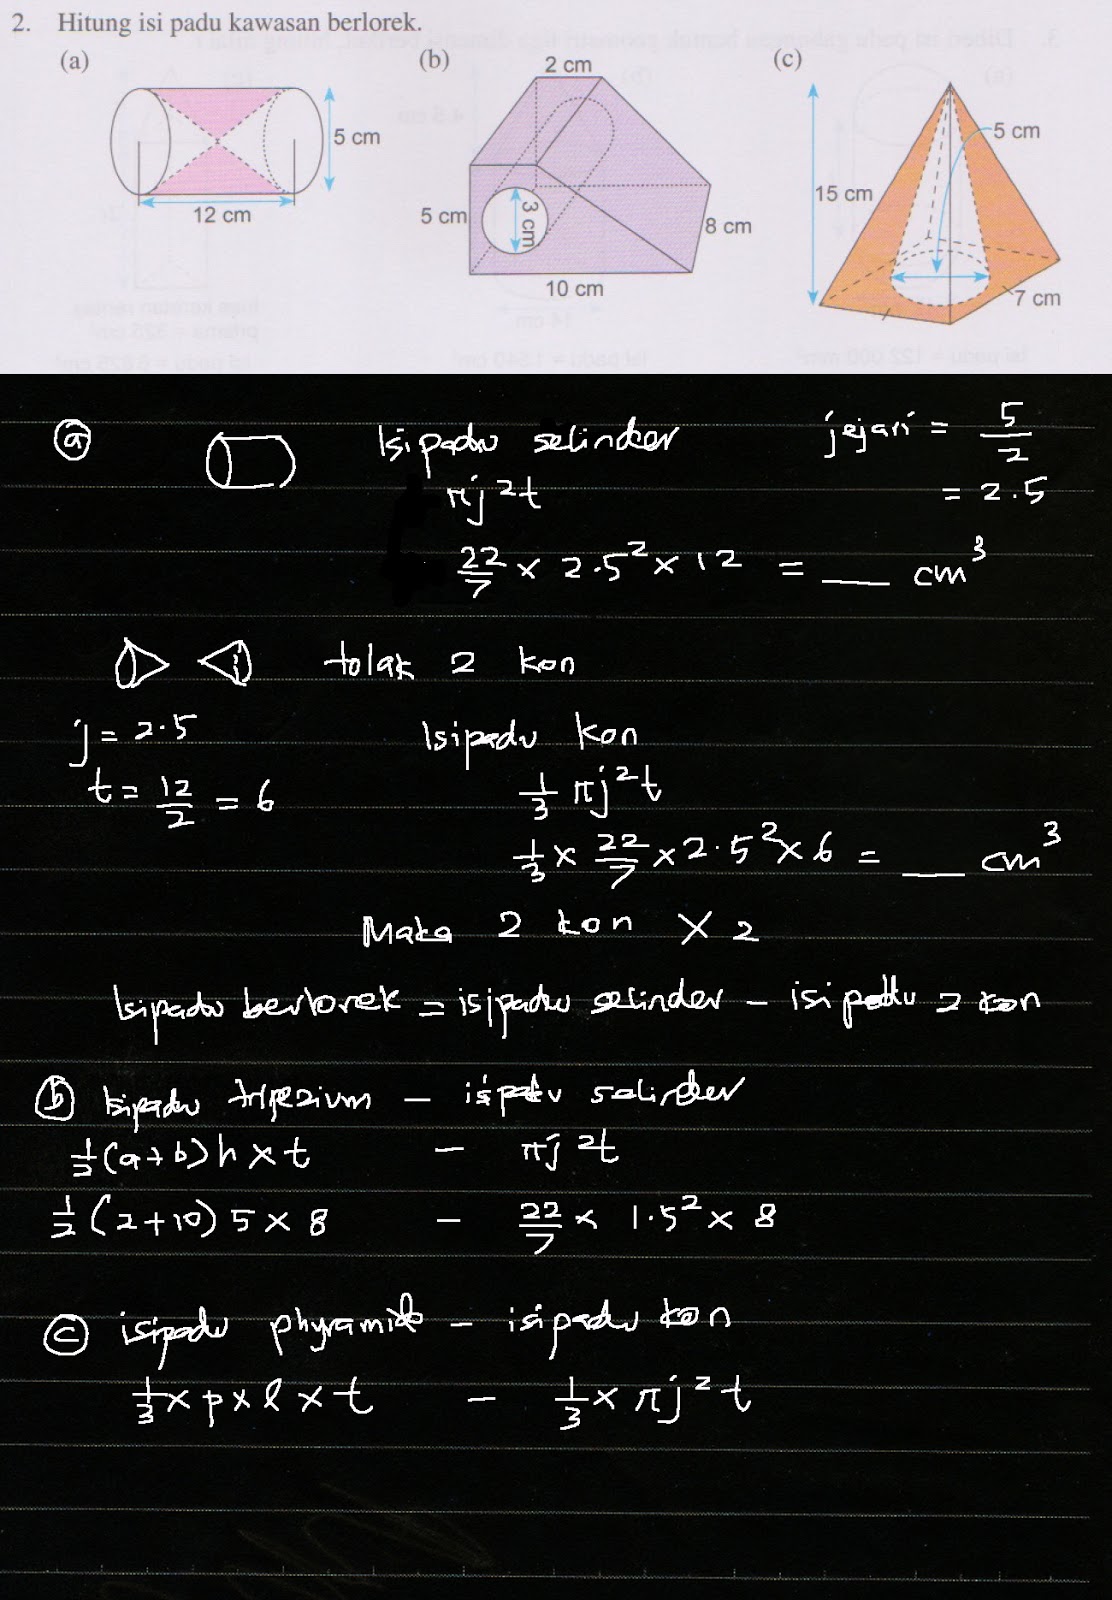 2. Hitung isi padu kawasan berlorek.
(a)
5 cm
12 cm
(b)
2 cm
5 cm
3 cm
8 cm
10 cm
(c)
5 cm
15 cm
7 cm
ⓐ Isipadu selinder jejari = 5/2
πj²t = 2.5
22/7 × 2.5² × 12 = __ cm³
tolak 2 kon
j = 2.5 Isipadu kon
t = 12/2 = 6 1/3 πj²t
1/3 × 22/7 × 2.5² × 6 = __ cm³
Maka 2 kon × 2
Isipadu berlorek = isipadu selinder - isipadu 2 kon
ⓑ Isipadu - selinder
1/2(a+b)h × t - πj²t
1/2(2+10)5 × 8 - 22/7 × 1.5² × 8
ⓒ isipadu phyramid - isipadu kon
1/3 × p × l × t - 1/3 × πj²t